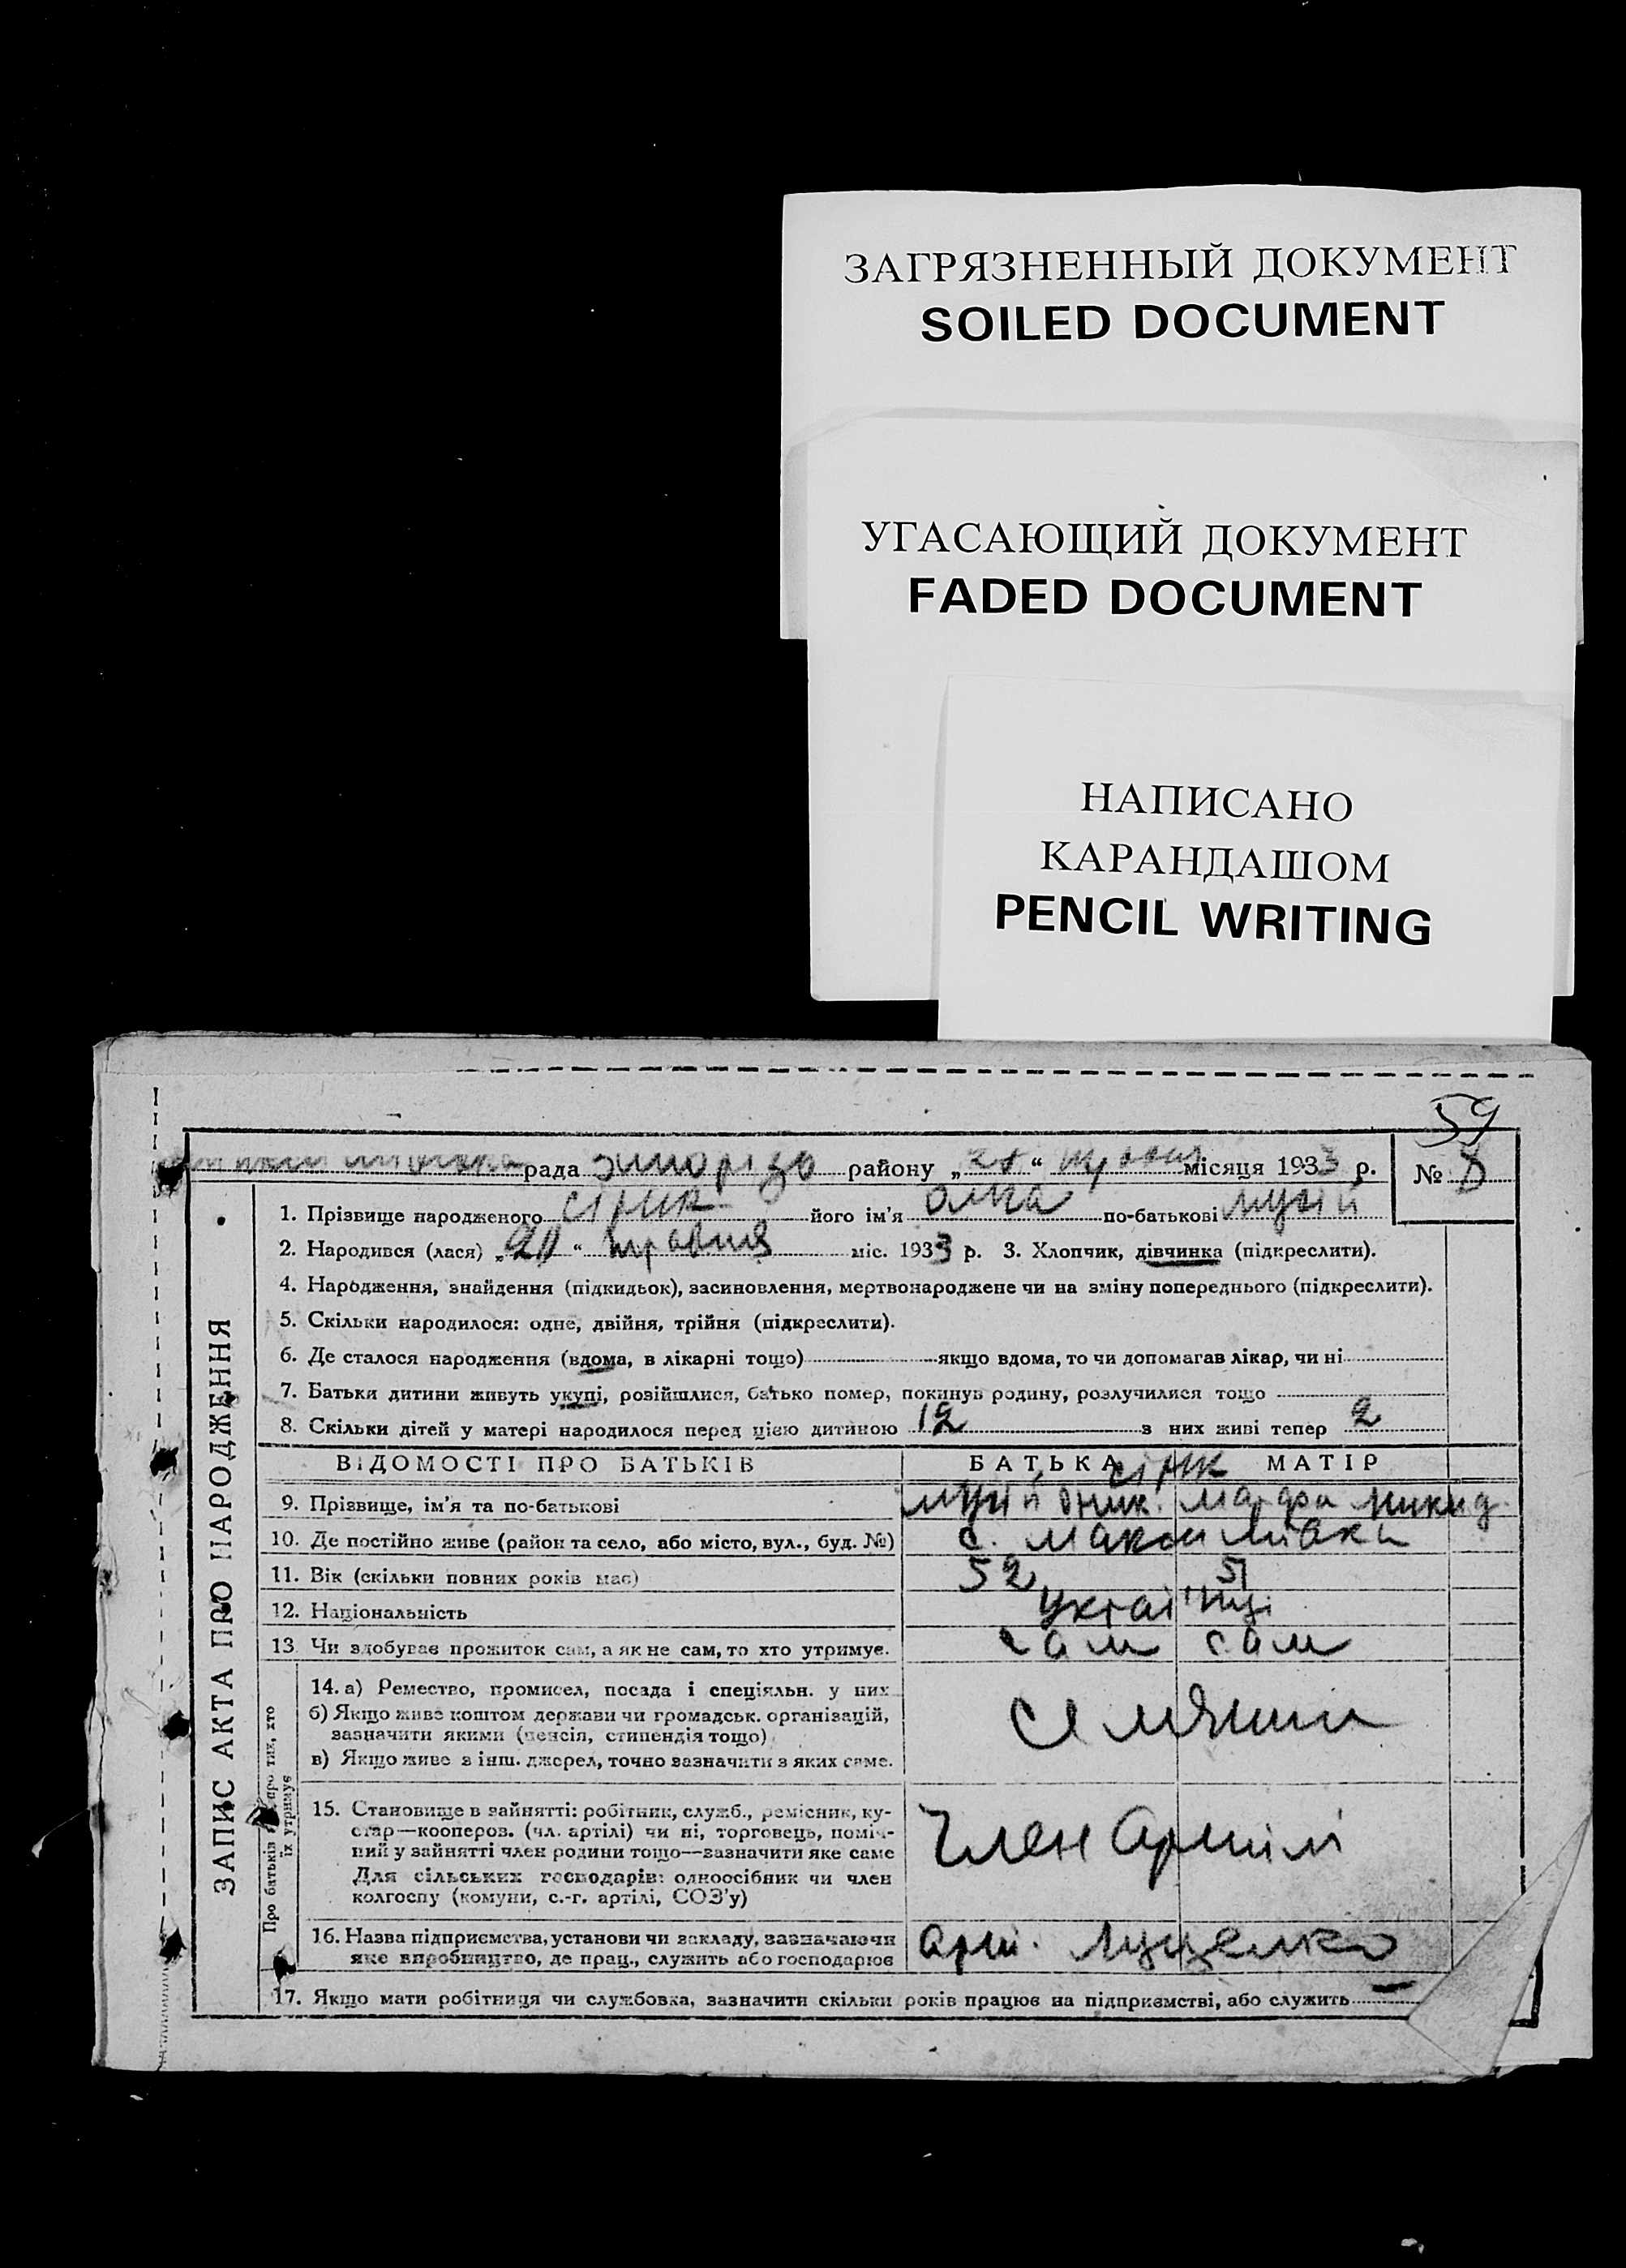 ЗАГРЯЗНЕННЫЙ ДОКУМЕНТ
SOILED DOCUMENT
УГАСАЮЩИЙ ДОКУМЕНТ
FADED DOCUMENT
НАПИСАНО
КАРАНДАШОМ
PENCIL WRITING
59
рада району „ “ травня місяця 1933 р. № 8
ЗАПИС АКТА ПРО НАРОДЖЕННЯ
1. Прізвище народженого Сірик його ім'я по-батькові Мусій
2. Народився (лася) „20“ травня міс. 1933 р. 3. Хлопчик, дівчинка (підкреслити).
4. Народження, знайдення (підкидьок), засиновлення, мертвонароджене чи на зміну попереднього (підкреслити).
5. Скільки народилося: одне, двійня, трійня (підкреслити).
6. Де сталося народження (вдома, в лікарні тощо) якщо вдома, то чи допомагав лікар, чи ні
7. Батьки дитини живуть укупі, розійшлися, батько помер, покинув родину, розлучилися тощо
8. Скільки дітей у матері народилося перед цією дитиною 12 з них живі тепер 2
ВІДОМОСТІ ПРО БАТЬКІВ БАТЬКА МАТІР
Сірик
9. Прізвище, ім'я та по-батькові Мусій Марфа Микид.
10. Де постійно живе (район та село, або місто, вул., буд. №) с. Максимівка
11. Вік (скільки повних років має) 52 51
12. Національність Українці
13. Чи здобуває прожиток сам, а як не сам, то хто утримує. сам сам
Про батьків про тих, хто їх утримує
14. а) Ремество, промисел, посада і спеціяльн. у них
б) Якщо живе коштом держави чи громадськ. організацій,
зазначити якими (пенсія, стипендія тощо)
в) Якщо живе з інш. джерел, точно зазначити з яких саме.
15. Становище в зайнятті: робітник, служб., ремісник, ку-
стар—кооперов. (чл. артілі) чи ні, торговець, поміч-
ний у зайнятті член родини тощо—зазначити яке саме
Для сільських господарів: одноосібник чи член
колгоспу (комуни, с.-г. артілі, СОЗ'у)
Член Артілі
16. Назва підприємства, установи чи закладу, зазначаючи
яке виробництво, де прац., служить або господарює
Арт. Луценко
17. Якщо мати робітниця чи службовка, зазначити скільки років працює на підприємстві, або служить —